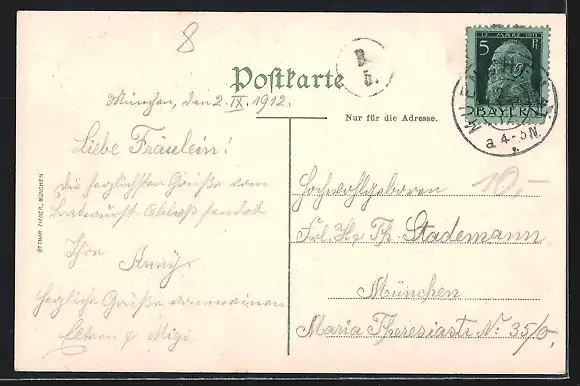 8
B.
5.
12. MÄRZ 1911
5 Pf
BAYERN
MÜNCHEN
a 4-5 N.
Postkarte
Nur für die Adresse.
München, den 2. IX. 1912.
Liebe Fräulein!
Die herzlichsten Grüße vom
sendet
Ihre
Anny.
Herzliche Grüße von meinen
Eltern &
10,-
Hochwohlgeboren
Frl. Th. Stademann
München
Maria Theresiastr. No. 35/0,
OTTMAR ZIEHER, MÜNCHEN